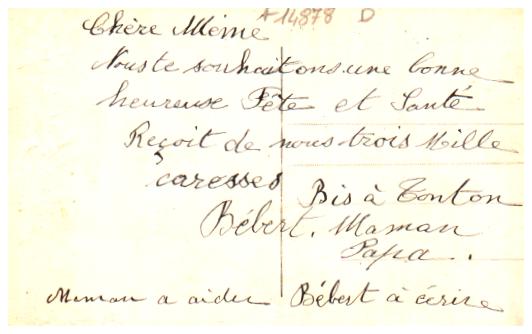 A 14878 D
Chère Mémé
Nous te souhaitons une bonne
heureuse Fête et Santé
Reçoit de nous trois Mille
caresses
Bis à Tonton
Bébert. Maman
Papa.
Maman a aider Bébert à écrire